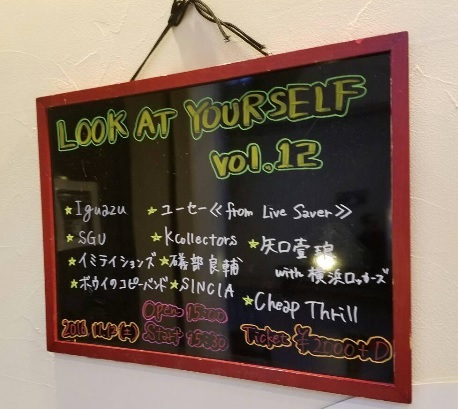 LOOK AT YOURSELF
vol.12
★Iguazu ★ユーセー≪from Live Saver≫
★SGU ★Kcollectors ★矢口壹琅
with 横浜ロッカーズ
★イミテイションズ ★礒部良輔
★ボウイのコピーバンド ★SINCIA
★Cheap Thrill
Open
2016 Start Ticket ¥2000+D